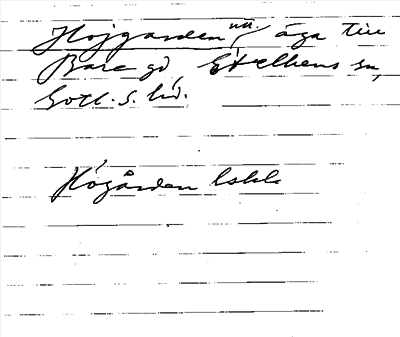 Hojgarden nu, äga till
Bare gd, Etelhens sn,
Gotl. S. hd.
Högården lskk